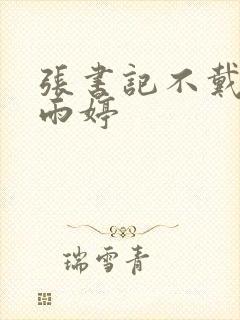 張書記不戴
雨婷
瑞雪青